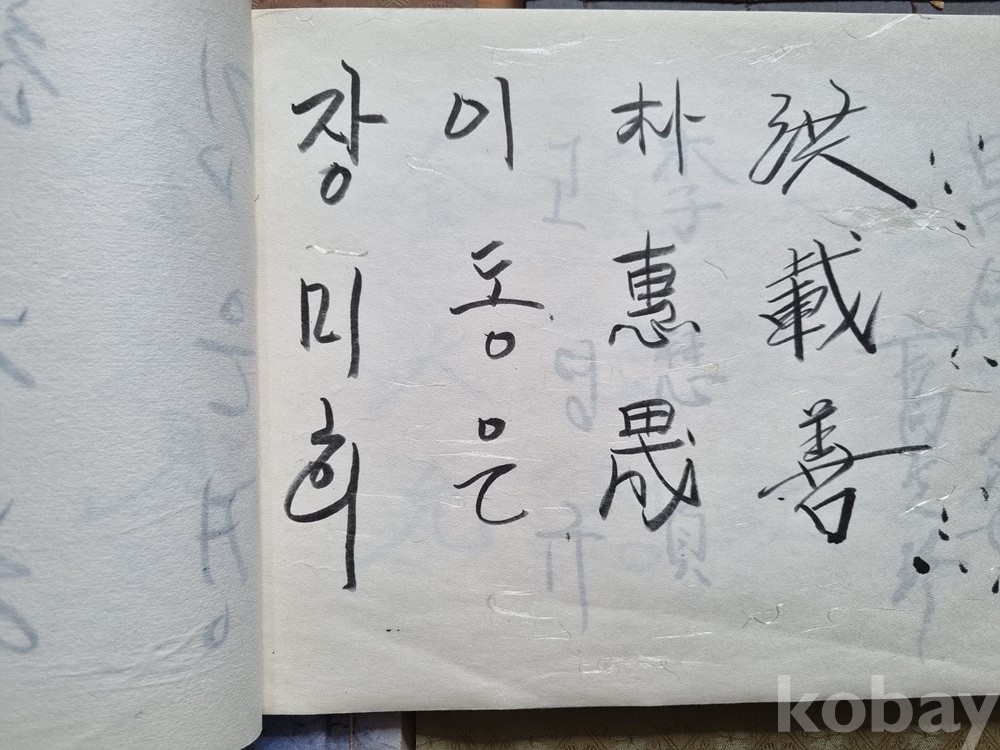 洪載善
朴惠晟
이동은
장미희
kobay